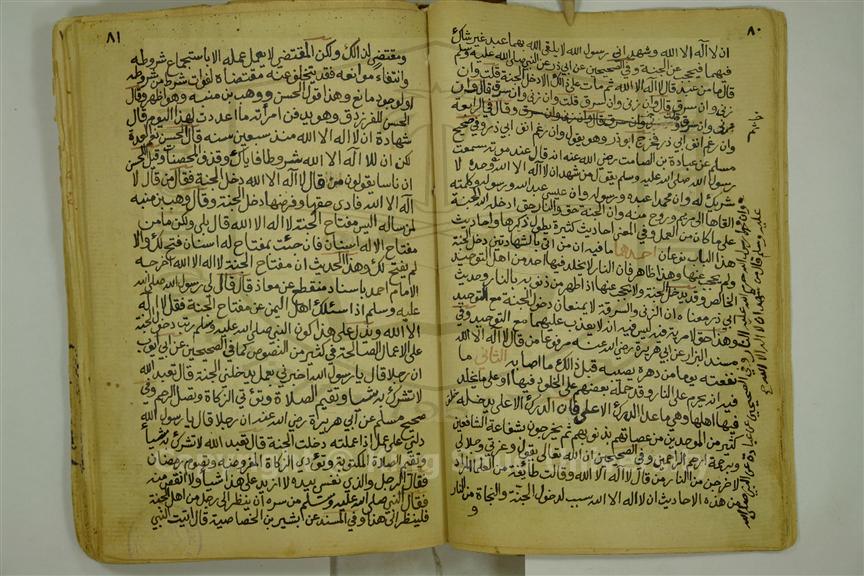 ٨٠
ان لا اله الا الله وشهد اني رسول الله لا يلقى الله بهما عبد غير شاك
فيهما فيحجب عن الجنة وفي الصحيحين عن ابي ذر عن النبي صلى الله عليه وسلم
قال ما من عبد قال لا اله الا الله ثم مات على ذلك الا دخل الجنة قلت وان
زنى وان سرق قال وان زنى وان سرق قلت وان زنى وان سرق قال وان
زنى وان سرق قلت وان زنى وان سرق قال وان زنى وان سرق وقال في الرابعة
وان رغم انف ابي ذر فخرج ابو ذر وهو يقول وان رغم انف ابي ذر وفي صحيح
مسلم عن عبادة بن الصامت رضي الله عنه انه قال عند موته سمعت
رسول الله صلى الله عليه وسلم يقول من شهد ان لا اله الا الله وحده لا
شريك له وان محمدا عبده ورسوله وان عيسى عبد الله ورسوله وكلمته
القاها الى مريم وروح منه وان الجنة حق والنار حق ادخله الله الجنة
على ما كان من العمل وفي المعنى احاديث كثيرة يطول ذكرها واحاديث
هذا الباب نوعان احدها ما فيه ان من اتى بالشهادتين دخل الجنة
ولم يحجب عنها وهذا ظاهر فان النار لا يخلد فيها احد من اهل التوحيد
الخالص وقد يدخل الجنة ولا يحجب عنها اذا طهر من ذنوبه بالنار وحديث
ابي ذر معناه ان الزنى والسرقة لا يمنعان دخول الجنة مع التوحيد
وهذا حق لا مرية فيه ليس فيه انه لا يعذب عليهما مع التوحيد وفي
مسند البزار عن ابي هريرة رضي الله عنه مرفوعا من قال لا اله الا الله
نفعته يوما من دهره يصيبه قبل ذلك ما اصابه الثاني ما
فيه انه يحرم على النار وقد حمله بعضهم على الخلود فيها او على ما يخلد
فيها اهلها وهي ما عدا الدرك الاعلى فان الدرك الاعلى يدخله خلق
كثير من الموحدين من عصاتهم بذنوبهم ثم يخرجون بشفاعة الشافعين
وبرحمة ارحم الراحمين وفي الصحيحين ان الله تعالى يقول وعزتي وجلالي
لاخرجن من النار من قال لا اله الا الله وقالت طائفة من العلماء المراد
من هذه الاحاديث ان لا اله الا الله سبب لدخول الجنة والنجاة من النار
٨١
ومقتضي لذلك ولكن المقتضي لا يعمل عمله الا باستجماع شروطه
وانتفاء موانعه فقد يتخلف عنه مقتضاه لفوات شرط من شروطه
او لوجود مانع وهذا قول الحسن ووهب بن منبه وهو اظهر وقال
الحسن للفرزدق وهو يدفن امرأته ما اعددت لهذا اليوم قال
شهادة ان لا اله الا الله منذ سبعين سنة قال الحسن نعم العدة
لكن ان للا اله الا الله شروطا فاياك وقذف المحصنات وقيل للحسن
ان ناسا يقولون من قال لا اله الا الله دخل الجنة فقال من قال لا
اله الا الله فادى حقها وفرضها دخل الجنة وقال وهب بن منبه
لمن ساله اليس مفتاح الجنة لا اله الا الله قال بلى ولكن ما من
مفتاح الا له اسنان فان جئت بمفتاح له اسنان فتح لك والا
لم يفتح لك وهذا الحديث ان مفتاح الجنة لا اله الا الله اخرجه
الامام احمد باسناد منقطع عن معاذ قال قال لي رسول الله صلى الله
عليه وسلم اذا سئلك اهل اليمن عن مفتاح الجنة فقل لا اله
الا الله ويدل على هذا كون النبي صلى الله عليه وسلم رتب دخول الجنة
على الاعمال الصالحة في كثير من النصوص كما في الصحيحين عن ابي ايوب
ان رجلا قال يا رسول الله اخبرني بعمل يدخلني الجنة قال تعبد الله
لا تشرك به شيئا وتقيم الصلاة وتؤتي الزكاة وتصل الرحم وفي
صحيح مسلم عن ابي هريرة رضي الله عنه ان رجلا قال يا رسول الله
دلني على عمل اذا عملته دخلت الجنة قال تعبد الله لا تشرك به شيئا
وتقيم الصلاة المكتوبة وتؤدي الزكاة المفروضة وتصوم رمضان
فقال الرجل والذي نفسي بيده لا ازيد على هذا شيئا ولا انقص منه
فقال النبي صلى الله عليه وسلم من سره ان ينظر الى رجل من اهل الجنة
فلينظر الى هذا وفي المسند عن بشير بن الخصاصية قال اتيت النبي